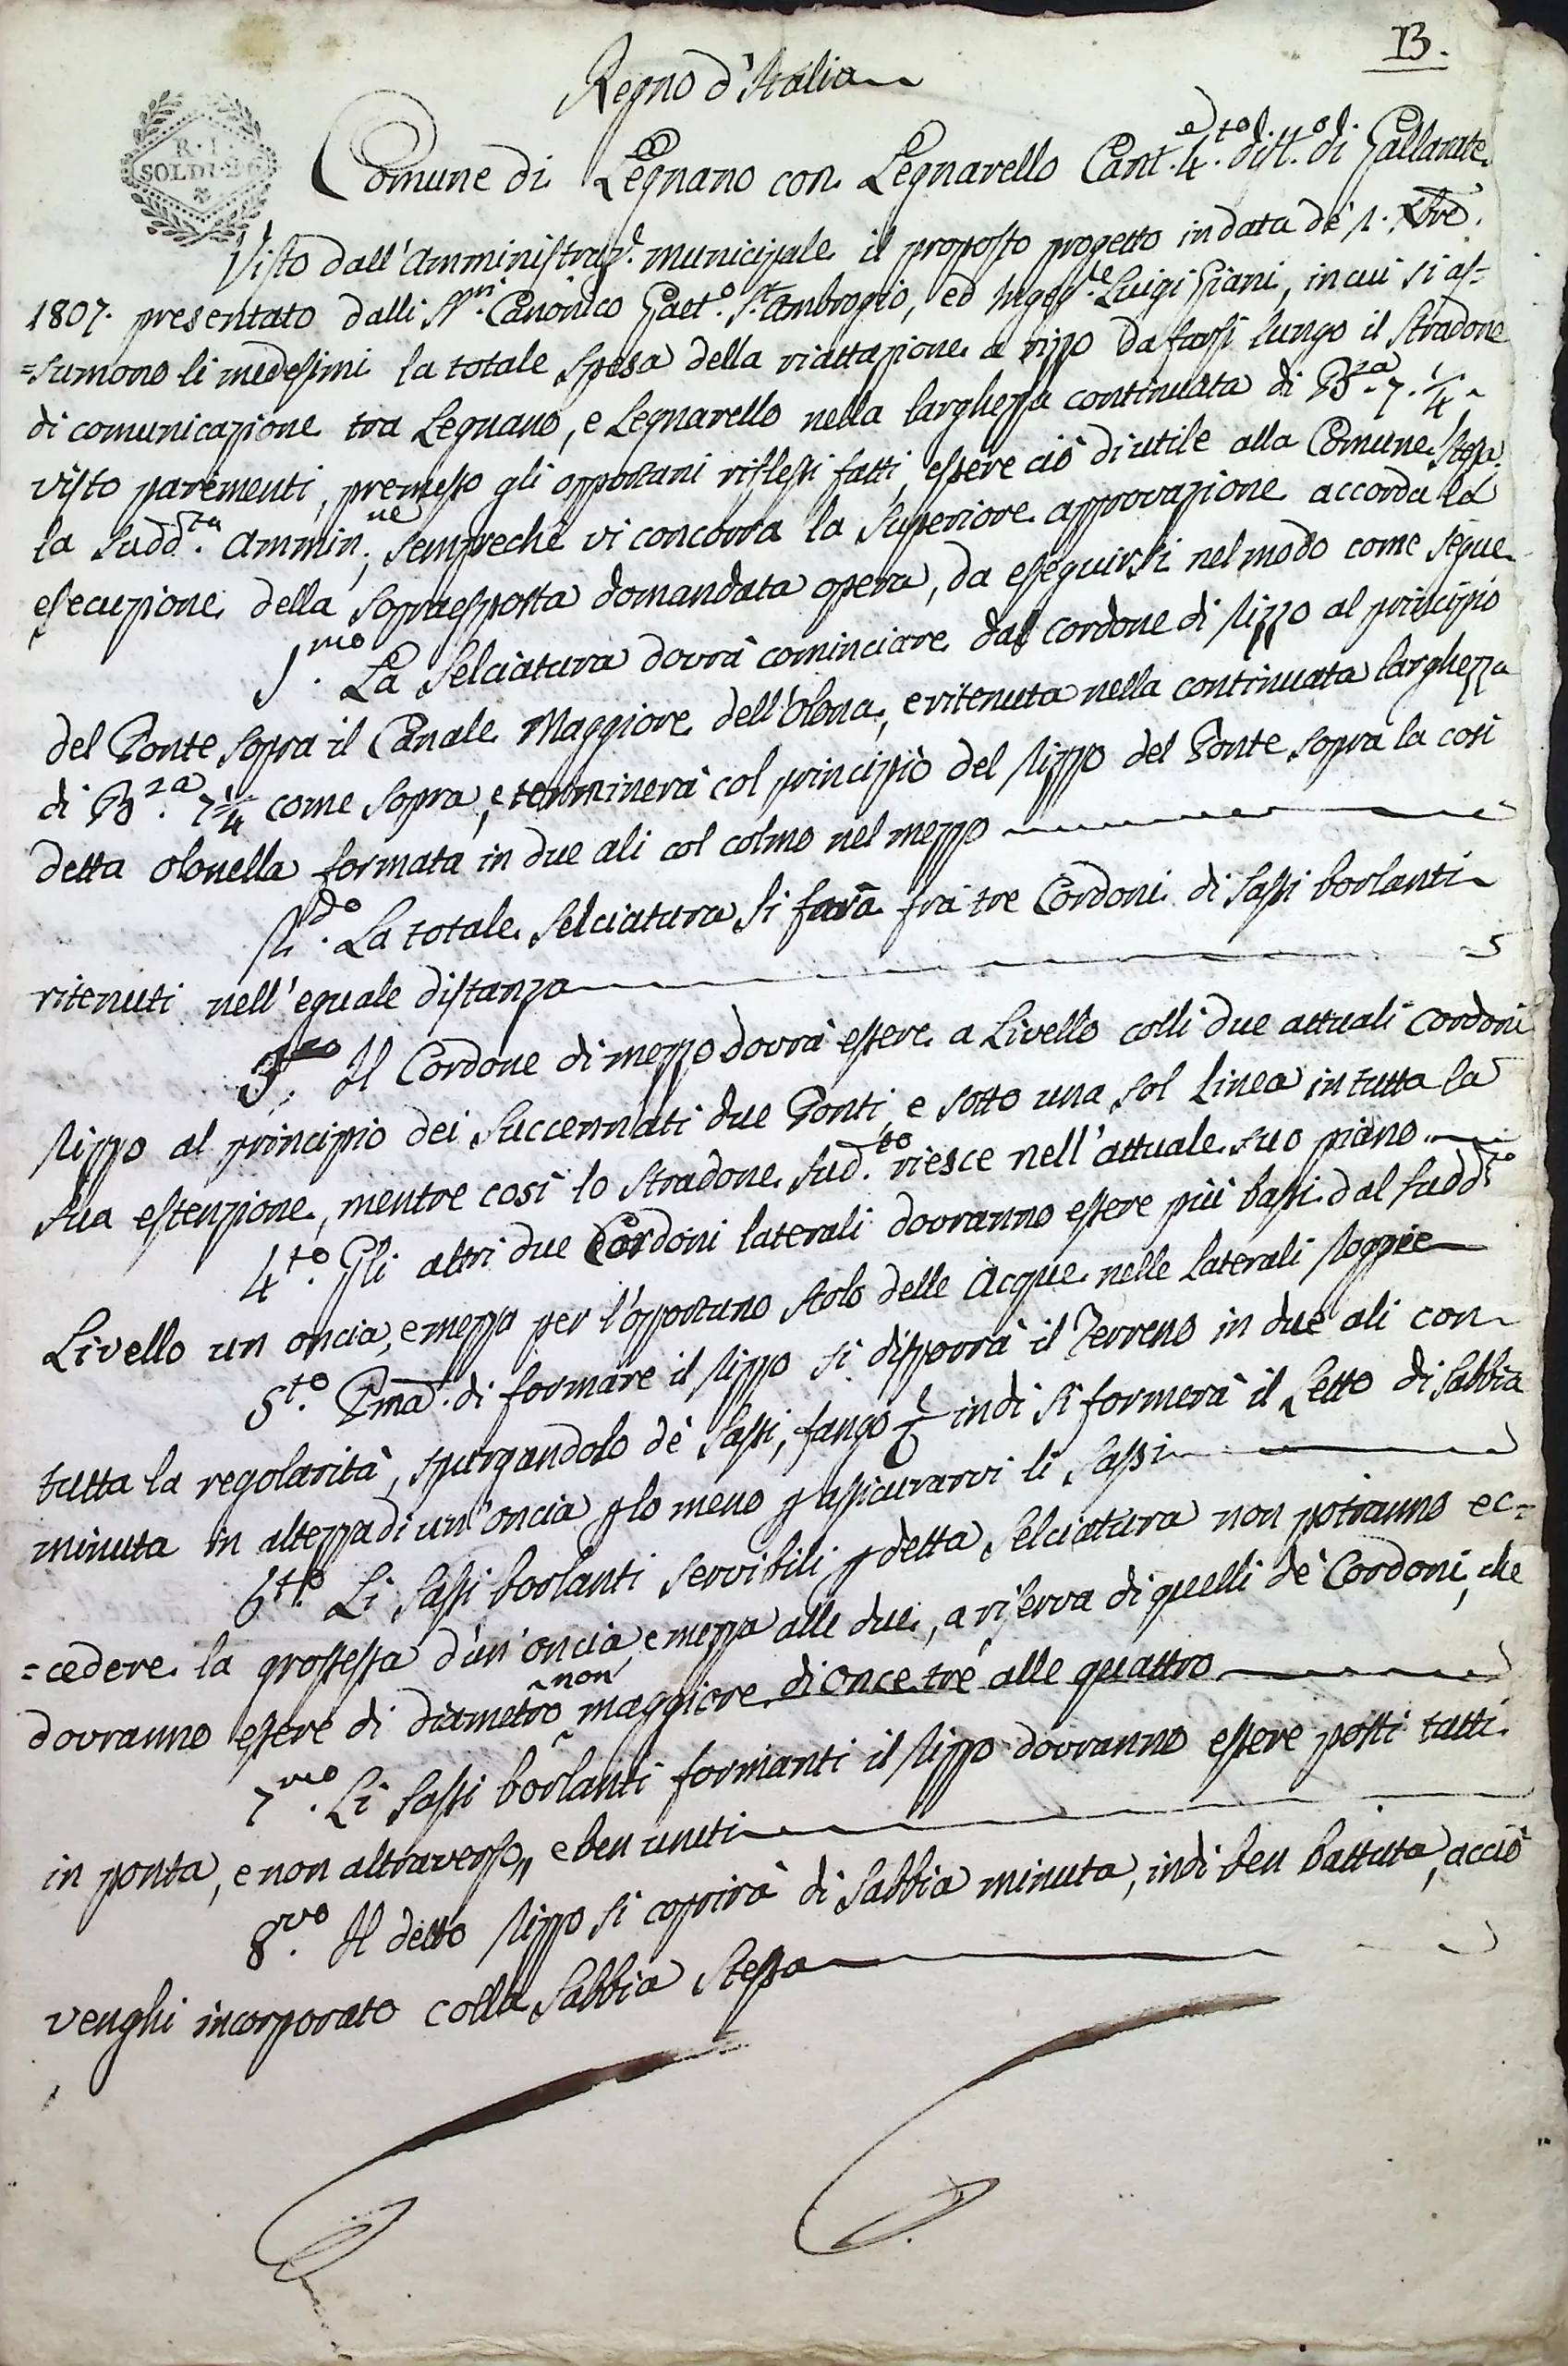 13.
Regno d'Italia
R. I.
SOLDI. 26
Comune di Legnano con Legnarello Cant.e 4.to dist.o di Gallarate
Visto dall'Amministraz.e municipale il proposto progetto in data de' 1. Xbre.
1807. presentato dalli Sri. Canonico Gaet.o St. Ambrogio, ed Ingeg.re Luigi Giani, in cui si as=
=sumono li medesimi la totale spesa della riattazione a rizzo da farsi lungo il Stradone
di comunicazione tra Legnano, e Legnarello nella larghezza continuata di B.za 7. 1/4,
visto parimenti, premesso gli opportuni riflessi fatti, essere ciò di utile alla Comune stessa
la Sudd.ta Ammin.ne, sempreche vi concorra la Superiore approvazione accorda la
esecuzione della sopraesposta domandata opera, da eseguirsi nel modo come segue
1.mo La Selciatura dovrà cominciare dal cordone di Rizzo al principio
del Ponte sopra il Canale Maggiore dell'Olona, e ritenuta nella continuata larghezza
di B.za 7 1/4 come sopra, e terminerà col principio del Rizzo del Ponte sopra la così
detta Olonella formata in due ali col colmo nel mezzo
2.do La totale Selciatura si farà frà tre Cordoni di Sassi borlanti
ritenuti nell'eguale distanza
3.zo Il Cordone di mezzo dovrà essere a Livello colli due attuali cordoni
Rizzo al principio dei Succennati due Ponti, e sotto una sol Linea in tutta la
sua estenzione, mentre così lo Stradone Sud.to riesce nell'attuale suo piano
4.to Gli altri due Cordoni laterali dovranno essere più bassi dal Sudd.to
Livello un oncia, e mezza per l'opportuno Scolo delle Acque nelle Laterali Roggie
5.to Pma. di formare il Rizzo si disporrà il Terreno in due ali con
tutta la regolarità, spurgandolo de' Sassi, fango &c. indi si formerà il Letto di Sabbia
minuta in altezza di un'oncia p lo meno p assicurarvi li Sassi
6.to Li Sassi borlanti servibili p detta Selciatura non potranno ec=
=cedere la grossessa d'un'oncia, e mezza alle due, a riserva di quelli de' Cordoni, che
dovranno essere di diametro non maggiore di once tre alle quattro
7.mo Li Sassi borlanti formanti il Rizzo dovranno essere posti tutti
in ponta, e non altraverso, e ben uniti
8.vo Il detto Rizzo si coprirà di Sabbia minuta, indi ben battuta, acciò
venghi incorporato colla Sabbia Stessa